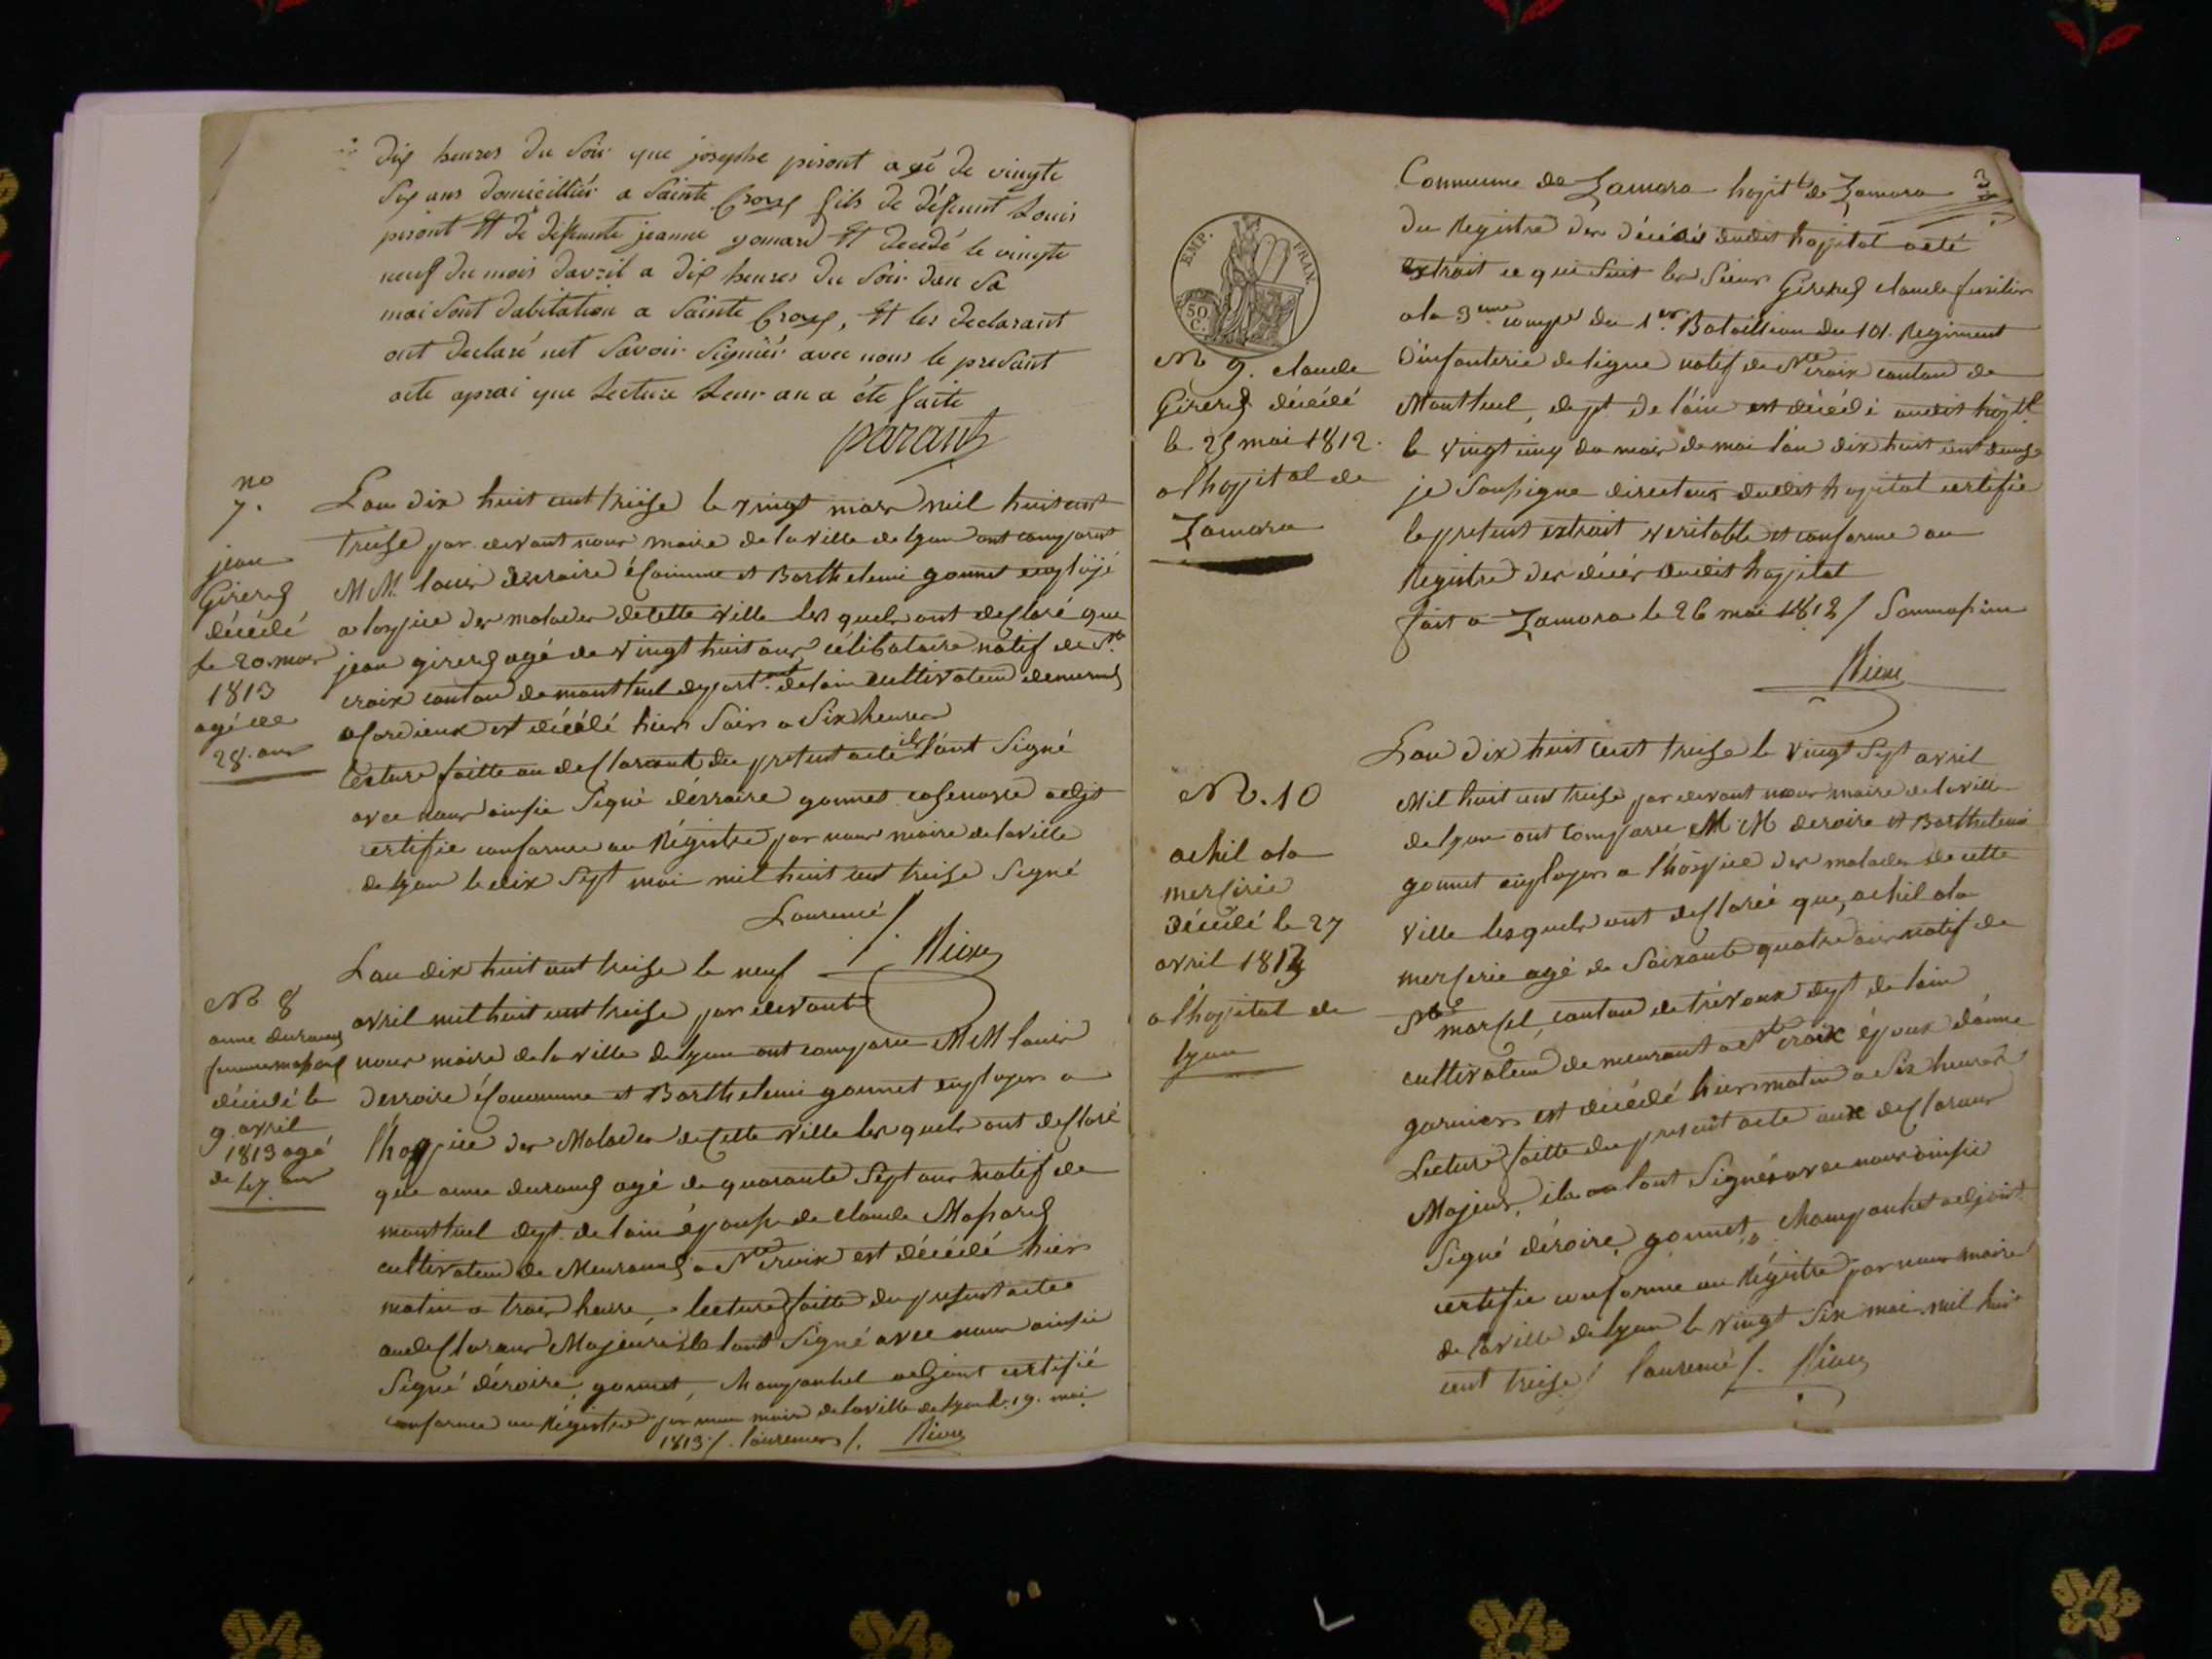 dix heures du soir que josephe piront agé de vingte
six ans domicilliér a Sainte Croux fils de défeunt Louis
piront Et de deffeunte jeanne gomard Et decédé le vingte
neuf du mois davril a dix heures du soir dan sa
mai sont dabitation a Sainte Croux, Et les declarant
ont declaré net savoir signiér avec nous le presant
acte aprai que Lecture Leur an a été faite
parant
no
7.
jean
Girerd
décédé
le 20 mars
1813
agé de
28. ans
Lan dix huit cent treise le vingt mars mil huit cent
treise par devant nous maire de la ville de lyon ont comparut
MM. louis derroire économme et Barthelemi gonnet employé
a lospice des malades de cette ville les quels ont desclaré que
jean girerd agé de vingt huit ans célibataire natif de Ste
croix canton de montluel depart.ment de lain cultivateur demeurent
a cordieux est décédé hier soir a six heures
lecture faitte au desclarant du present acte ils l'ont signé
avec nous ainsie signé dérroire gonnet casenove adjt
certifie conforme au Régistre par nous maire de la ville
de lyon le dix sept mai mil huit cent treise signé
Laurencé /.
Rioux
N 8
anne durand
femme massard
décédé le
9. avril
1813 agé
de 47 ans
Lan dix huit cent treise le neuf
avril mil huit cent treise par devant
nous maire de la ville de lyon ont comparu MM louis
derroire éconnomme et Barthelemi gonnet employer a
l'hospice des Malades de cette ville les quels ont desclaré
que anne durand agé de quarante sept ans natif de
montluel dept. de lain épouse de claude Massard
cultivateur de Meurand a Ste croix est décédé hier
matin a trois heure, lecture faitte du present acte
au desclarans Majeurs ils lont signé avec nous ainsie
signé déroire, gonnet, Champanhet adjoint certifié
conforme au Régistre par nous maire de la ville de lyon le. 19. mai
1813 /. laurences /. Rioux
3
EMP. FRAN.
50 C.
N 9. claude
Girerd décédé
le 25 mai 1812.
a lhopital de
Zamora
Commune de Zamora hopitl de Zamora
du Registre des décédés dudit hopital a eté
extrait ce qui suit le Sieur Girerd claude fusilier
a la 3eme compe du 1er. Bataillion du 101. Regiment
d'infanterie de ligne natif de Ste croix canton de
Montluel, dept. de l'ain est décédé audit hôptl
le vingt cinq du mois de mai lan dix huit cent douse
je soussigne directeur dudit hopital certifie
le present extrait veritable et conforme au
Registre des décés dudit hopital
fait a Zamora le 26 mai 1812 /
Rioux
N. 10
achil ala
merserie
décédé le 27
avril 1813
a l'hopital de
lyon
Lan dix huit cent treise le vingt sept avril
Mil huit cent treise par devant nous maire de la ville
de lyon ont comparu M. M deroire et Barthelemi
gonnet employer a l'hospice des malades de cette
ville les quels ont desclaré que, achil ala
merserie agé de soixante quatre ans natif de
Ste marsel, canton de trévoux dept de lain
cultivateur de meurant a Ste croix époux d'anne
garnier est décédé hier matin a six heures
Lecture faitte du present acte aux desclarans
Majeurs, ils on lont signés avec nous ainsie
Signé déroire, gonnet, Champanhet adjoint
certifie conforme au Régistre par nous maire
de la ville de lyon le vingt six mai mil huit
cent treise / laurencé /. Rioux